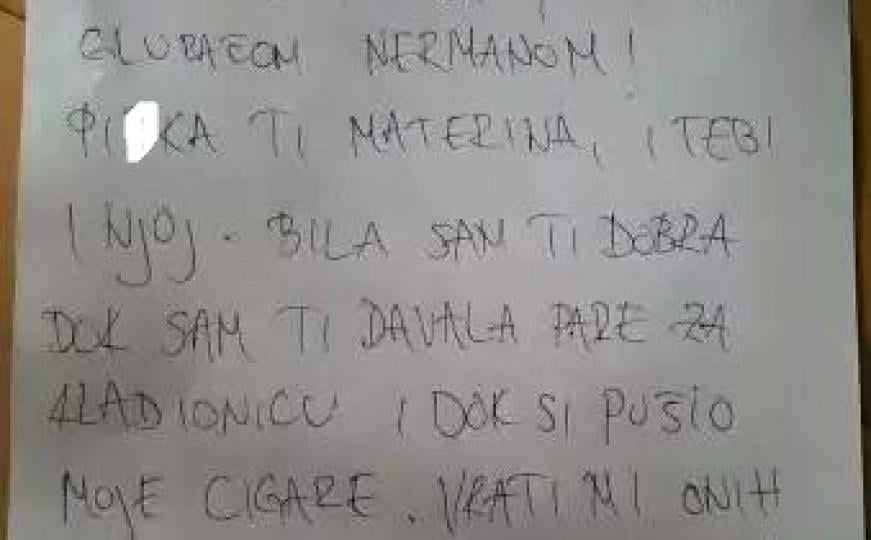 NERMANOM!
PI KA TI MATERINA, I TEBI
I NJOJ. BILA SAM TI DOBRA
DOK SAM TI DAVALA PARE ZA
KLADIONICU I DOK SI PUŠIO
MOJE CIGARE. VRATI MI ONIH